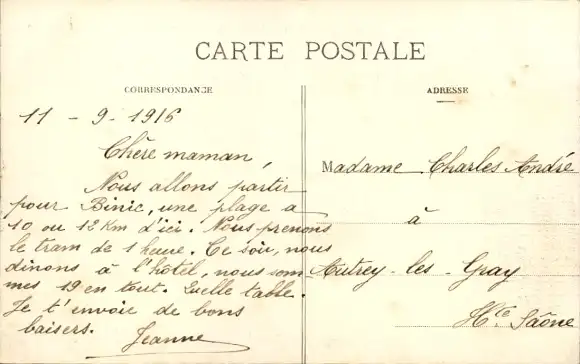 CARTE POSTALE
CORRESPONDANCE
ADRESSE
11 - 9 - 1916
Chère maman,
Nous allons partir
pour Binic, une plage a
10 ou 12 Km d'ici. Nous prenons
le tram de 1 heure. Ce soir, nous
dinons à l'hôtel, nous som
mes 19 en tout. Quelle table.
Je t'envoie de bons
baisers.
Jeanne
Madame Charles André
à
Autrey-les-Gray
Hte Saône